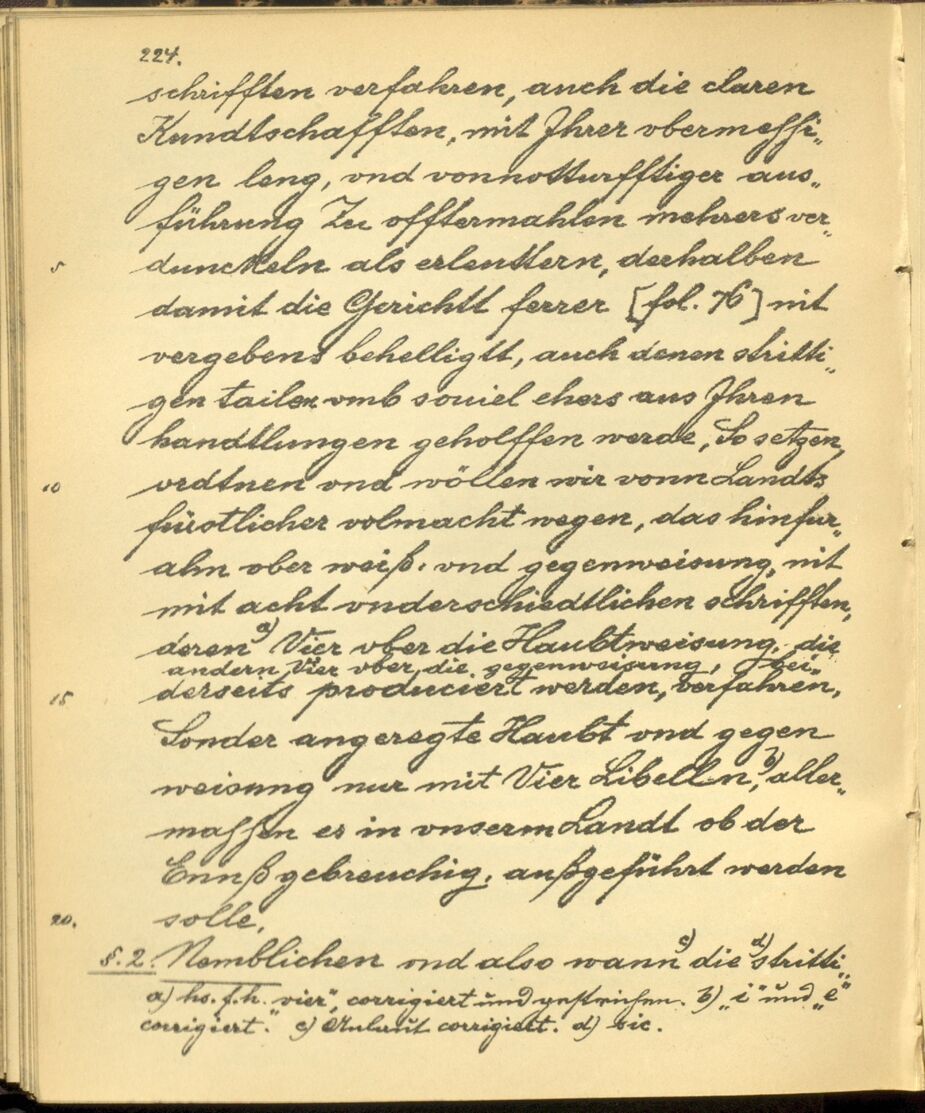 224.
schrifften verfahren, auch die claren
Kundtschafften, mit Ihrer vbermessi„
gen leng, vnd vonnotturfftiger aus„
führung Zu offtermahlen mehrers ver„
5 dunckeln als erleuttern, derhalben
damit die Gerichtt ferrer [fol. 76] nit
vergebens behelligtt, auch denen stritti„
gen tailen vmb souiel ehers aus Ihren
handtlungen geholffen werde, So setzen,
10 ordtnen vnd wöllen wir vonn Landts
fürstlicher volmacht wegen, das hinfur„
ahn vber weiß. vnd gegenweisung, nit
mit acht vnderschiedtlichen schrifften,
deren a) Vier vber die Haubtweisung, die
andern Vier vber die gegenweisung, bei„
15 derseits produciert werden, verfahren,
Sonder angeregte Haubt vnd gegen
weisung nur mit Vier Libelln, b) aller„
massen es in vnserm Landt ob der
Ennß gebreuchig, außgeführt werden
20. solle.
§. 2. Nemblichen vnd also wann c) die d) stritti„
a) hs. f.h. „vier“, corrigiert und gestrichen. b) „i“ und „e“
corrigiert. c) Anlaut corrigiert. d) sic.